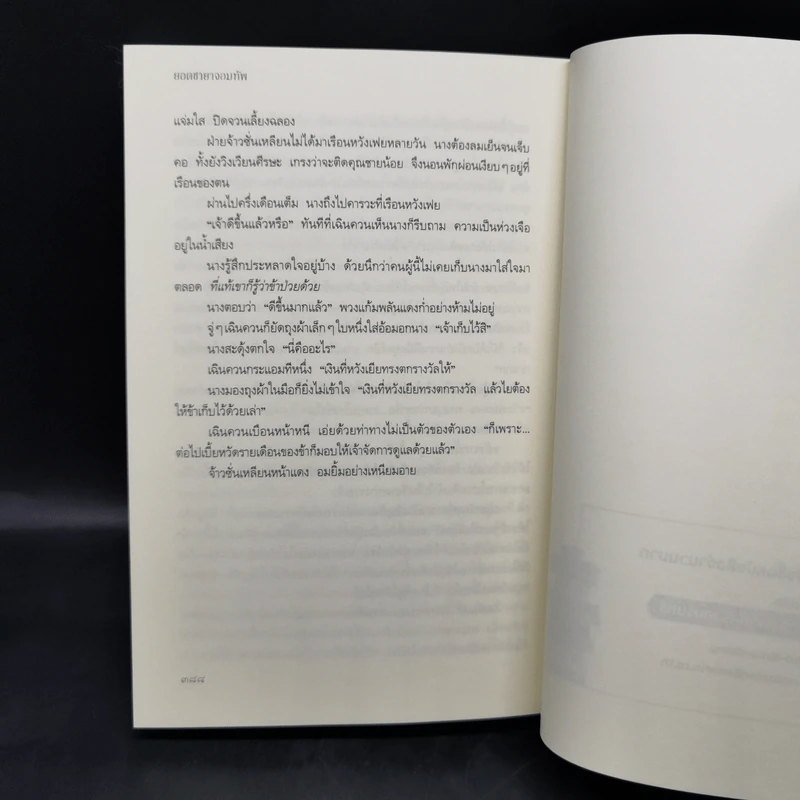 ยอดชายาจอมทัพ
แจ่มใส ปิดจวนเลี้ยงฉลอง
ฝ่ายจ้าวซั่นเหลียนไม่ได้มาเรือนหวังเฟยหลายวัน นางต้องลมเย็นจนเจ็บ
คอ ทั้งยังวิงเวียนศีรษะ เกรงว่าจะติดคุณชายน้อย จึงนอนพักผ่อนเงียบๆ อยู่ที่
เรือนของตน
ผ่านไปครึ่งเดือนเต็ม นางถึงไปคารวะที่เรือนหวังเฟย
“เจ้าดีขึ้นแล้วหรือ” ทันทีที่เฉินควนเห็นนางก็รีบถาม ความเป็นห่วงเจือ
อยู่ในน้ำเสียง
นางรู้สึกประหลาดใจอยู่บ้าง ด้วยนึกว่าคนผู้นี้ไม่เคยเก็บนางมาใส่ใจมา
ตลอด ที่แท้เขาก็รู้ว่าข้าป่วยด้วย
นางตอบว่า “ดีขึ้นมากแล้ว” พวงแก้มพลันแดงก่ำอย่างห้ามไม่อยู่
จู่ๆ เฉินควนก็ยัดถุงผ้าเล็กๆ ใบหนึ่งใส่อ้อมอกนาง “เจ้าเก็บไว้สิ”
นางสะดุ้งตกใจ “นี่คืออะไร”
เฉินควนกระแอมทีหนึ่ง “เงินที่หวังเยียทรงตกรางวัลให้”
นางมองถุงผ้าในมือก็ยิ่งไม่เข้าใจ “เงินที่หวังเยียทรงตกรางวัล แล้วไยต้อง
ให้ข้าเก็บไว้ด้วยเล่า”
เฉินควนเบือนหน้าหนี เอ่ยด้วยท่าทางไม่เป็นตัวของตัวเอง “ก็เพราะ...
ต่อไปเบี้ยหวัดรายเดือนของข้าก็มอบให้เจ้าจัดการดูแลด้วยแล้ว”
จ้าวซั่นเหลียนหน้าแดง อมยิ้มอย่างเหนียมอาย
๓๘๘